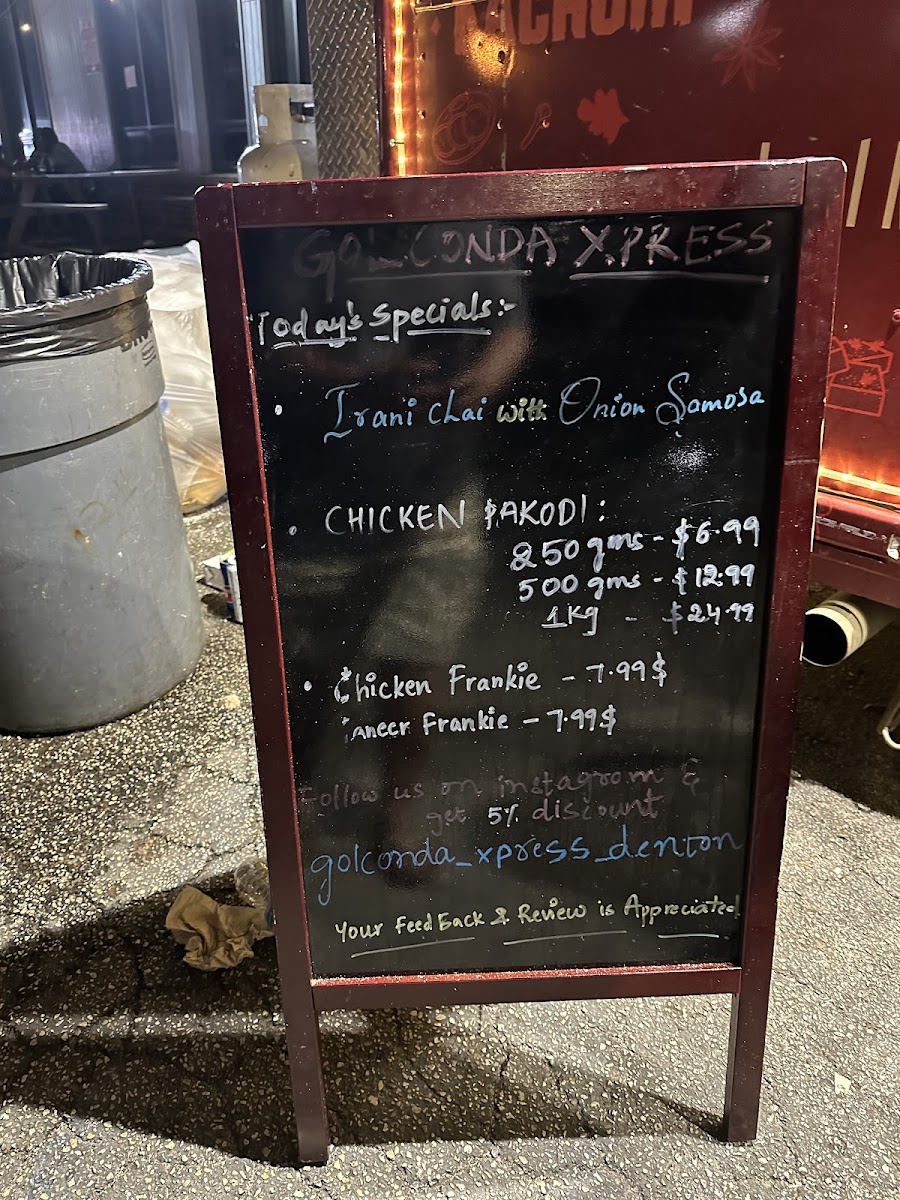 KACHORI
GOLCONDA XPRESS
Today's Specials:-
• Irani Chai with Onion Samosa
• CHICKEN PAKODI:
250 gms - $6.99
500 gms - $12.99
1Kg - $24.99
• Chicken Frankie - 7.99$
Paneer Frankie - 7.99$
Follow us on instagram &
get 5% discount
golconda_xpress_denton
Your FeedBack & Review is Appreciated